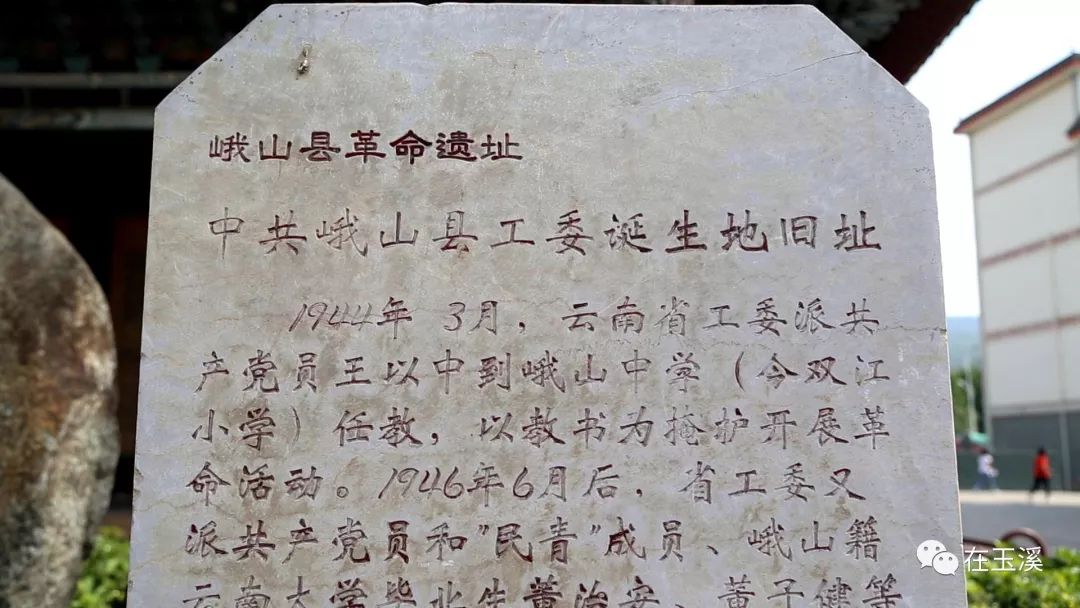 峨山县革命遗址
中共峨山县工委诞生地旧址
1944年3月，云南省工委派共
产党员王以中到峨山中学（今双江
小学）任教，以教书为掩护开展革
命活动。1946年6月后，省工委又
派共产党员和"民青"成员、峨山籍
云南大学毕业生董治安、董子健等
在玉溪